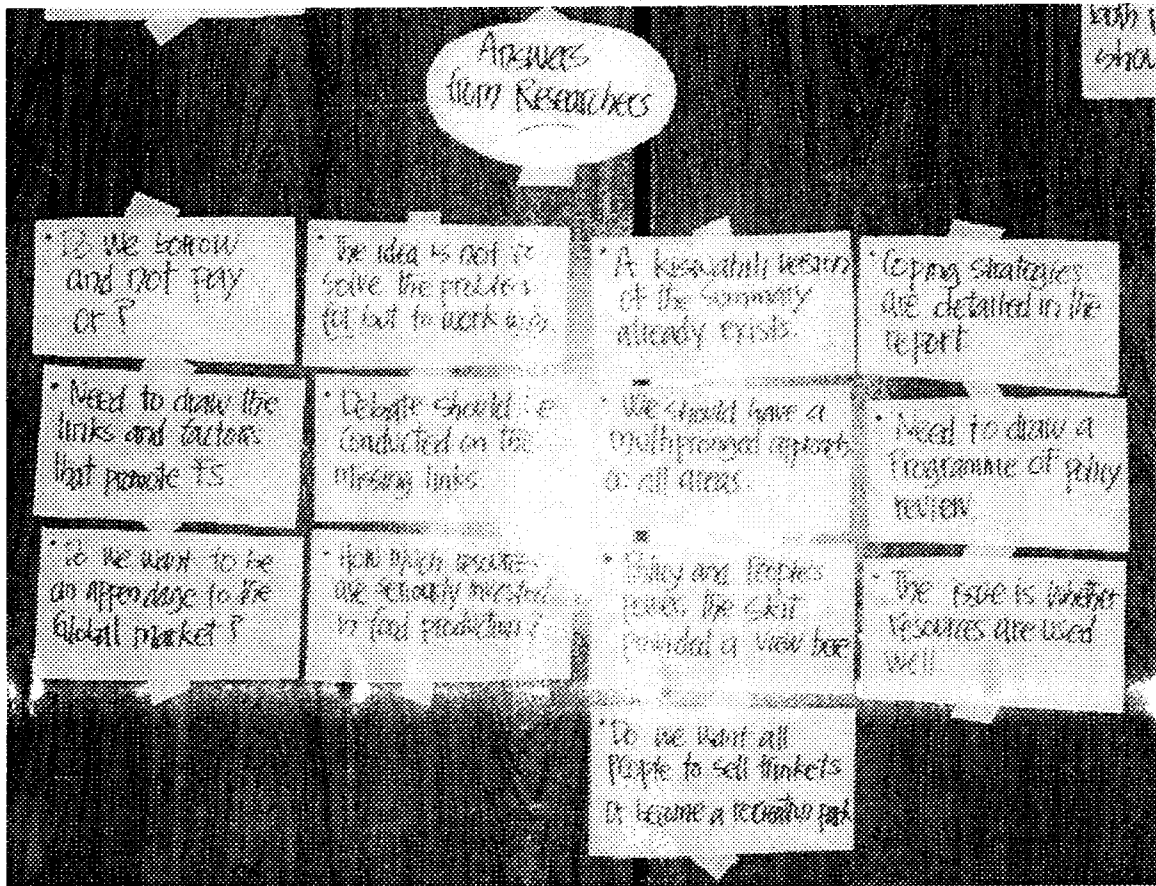 Answers
from Researchers
both
shou
• Do we borrow
and not pay
or ?
• Need to draw the
links and factors
that promote FS
• Do we want to be
an appendage to the
Global market ?
• The idea is not to
solve the problem
but to work
• Debate should be
conducted on the
missing links.
• How much resources
are actually invested
in food production ?
• A Kiswahili version
of the Summary
already exists.
• We should have a
multipronged reports
on all areas.
• Policy and Peoples
the skit
provided a view here
• Do we want all
people to sell trinkets
or become a recreation park
• Coping strategies
are detailed in the
report
• Need to draw a
Programme of policy
review
• The issue is whether
resources are used
well